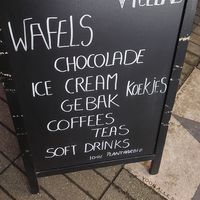 WAFELS
CHOCOLADE
ICE CREAM KOEKJES
GEBAK
COFFEES
TEAS
SOFT DRINKS
100% PLANTAARDIG